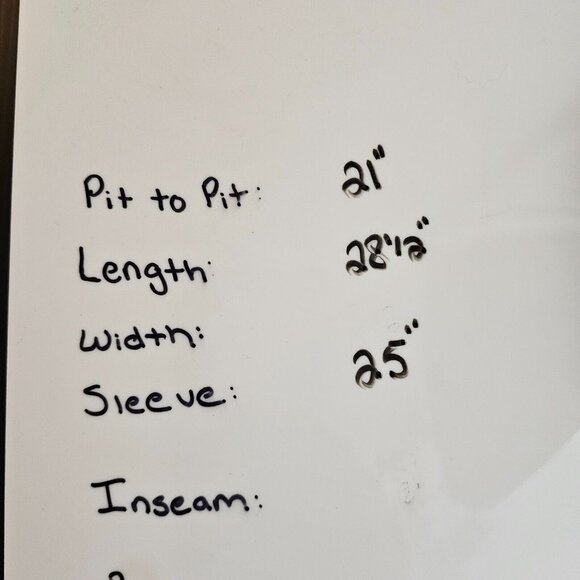 Pit to Pit: 21"
Length: 28 1/2"
Width:
Sleeve: 25"
Inseam: